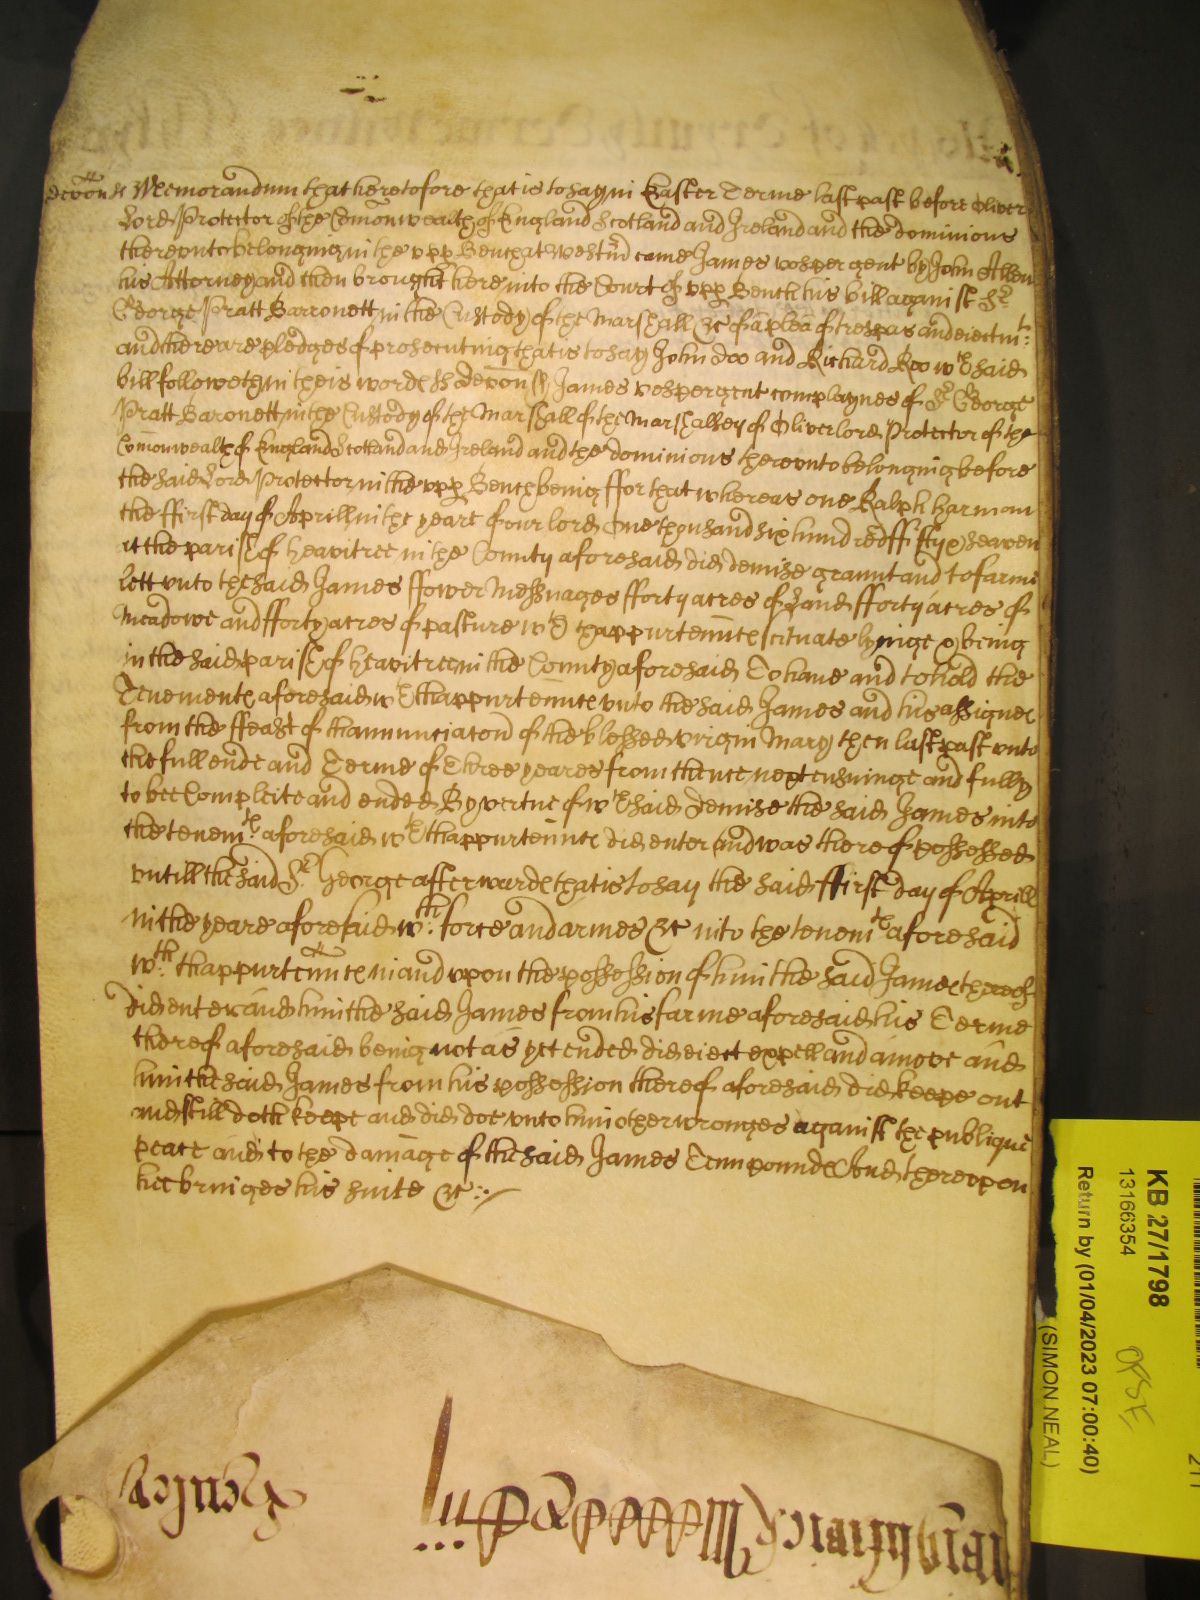 devon ss Memorandum that heretofore that is to say in Easter Terme last past before Oliver
Lord Protector of the Comonwealth of England Scotland and Ireland and the dominions
thereunto belonging in the upp Bench at Westm̃ came James vosper gent by John Allen
his Attorney and then brought here into the Court of upp Bench his bill against Sr
George Pratt Barronett in the Custody of the Marshall &c of a plea of trespas and eiectmt:
and there are pledges of prosecuting that is to say John doo and Richard Roo wch said
bill followeth in theis words ss devon ss James vosper gent complaynes of Sr George
Pratt Baronett in the Custody of the Marshall of the Marshalsey of Oliver lord Protector of the
Comonwealth of England Scotland and Ireland and the dominions thereunto belonging before
the said Lord Protector in the upp Bench being ffor that whereas one Ralph harman
the ffirst day of Aprill in the yeare of our lord One thousand six hundred ffifty & seaven
att the parish of heavitree in the County aforesaid did demise graunt and to farme
lett unto the said James ffower Messuages fforty acres of Land fforty acres of
Meadowe and fforty acres of pasture wth thappurtennce scituate lyinge & being
in the said parish of heavitree in the County aforesaid To have and to hold the
Tenemente aforesaid wth thappurtennce unto the said James and his assignes
from the ffeast of thannunciacon of the blessed virgin Mary then last past unto
the full ende and Terme of Three yeares from thence next ensuinge and fully
to bee Compleite and ended By vertue of wch said demise the said James into
the tenemte aforesaid wth thappurtennce did enter and was thereof possessed
untill the said Sr George afterwarde that is to say the said ffirst day of Aprill
in the yeare aforesaid wth: force and armes &c into the tenemte aforesaid
wth: thappurtennce in and upon the possession of him the said James thereof
did enter and him the said James from his farme aforesaid his Terme
thereof aforesaid being not as yet ended did eiect expell and amove and
him the said James from his possession thereof aforesaid did keepe out
and still doth keepe and did doe unto him other wronges against the publique
peace and to the damage of the said James Tenn pounde And thereupon
hee bringes his suite &c
KB 27/1798
13166354
Return by (01/04/2023 07:00:40)
(SIMON NEAL)